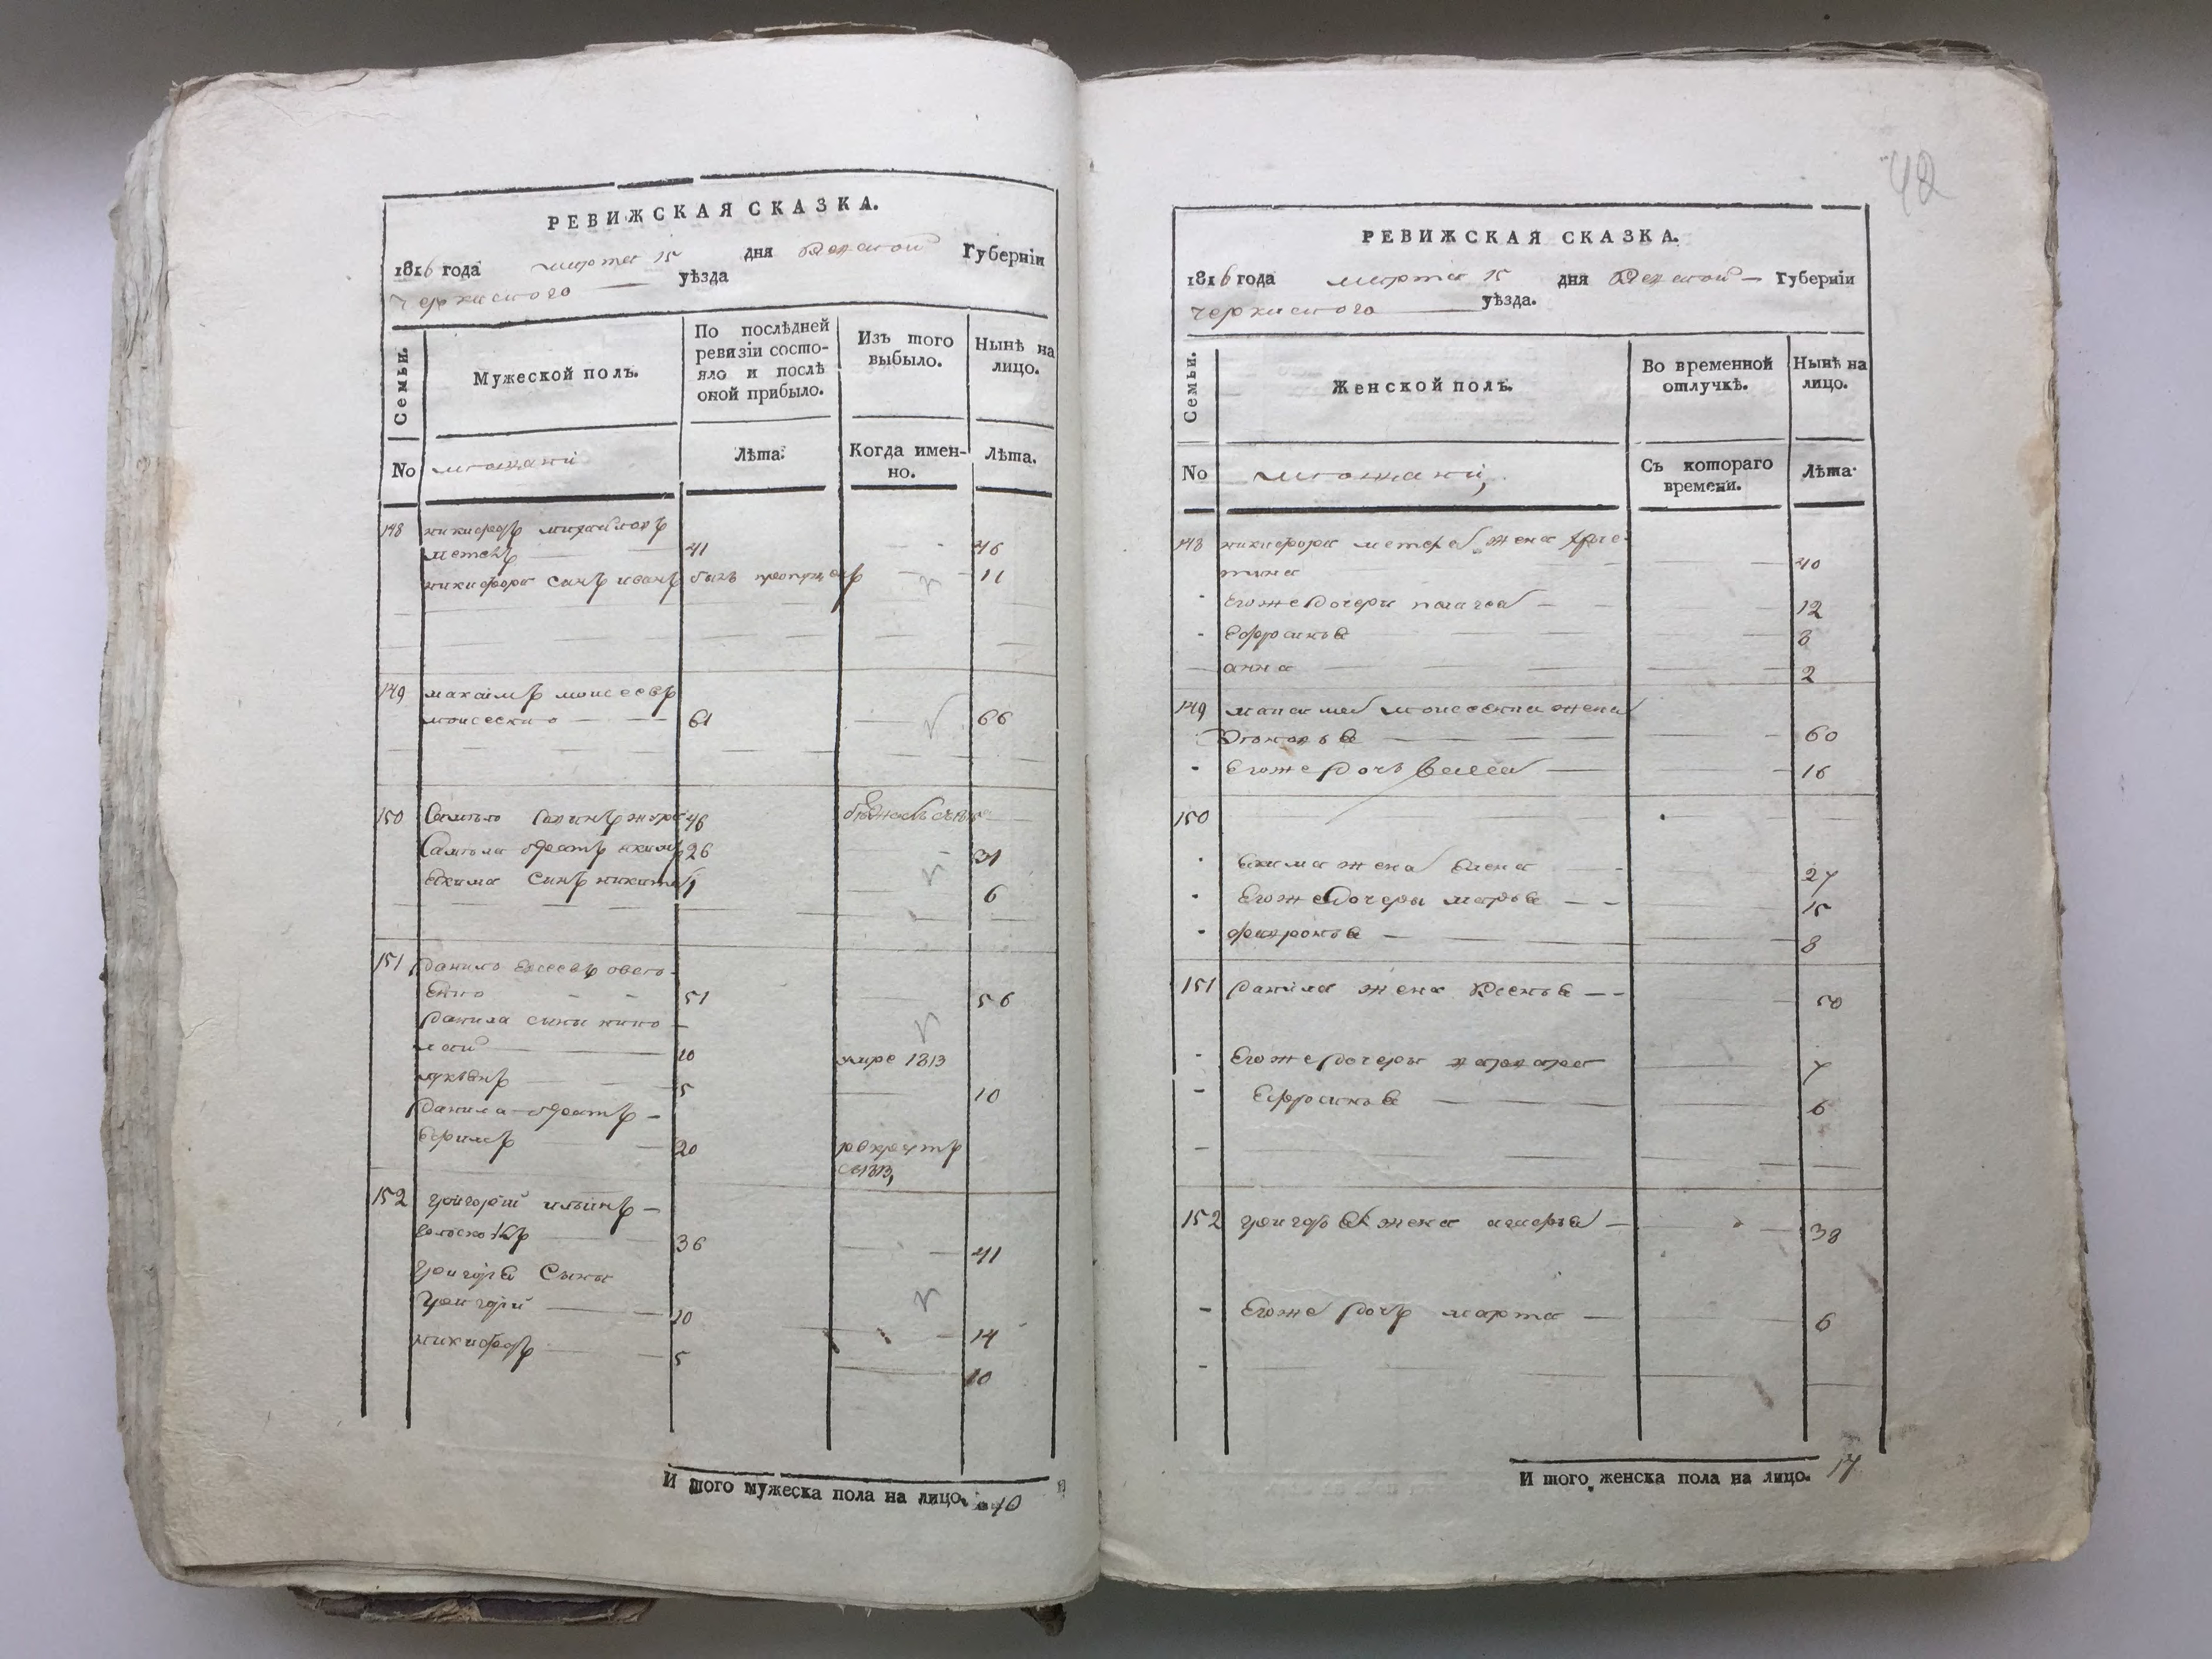 РЕВИЖСКАЯ СКАЗКА.
1816 года марта 15 дня Губерніи
Черкаского уѣзда
Семьи.
Мужеской полъ.
По послѣдней ревизіи состояло и послѣ оной прибыло.
Изъ того выбыло.
Нынѣ на лицо.
No
Лѣта.
Когда именно.
Лѣта.
148 никифоръ михайловъ
41 46
никифора синъ иванъ былъ пропущенъ 11
149 максимъ моисеевъ
моисеенко 61 66
150 46
Самойла братъ екимъ 26 31
Екима синъ никита 1 6
151 данило
51 56
данила сыны нико
лай 10 умре 1813
лукьянъ 5 10
данила братъ
Ефимъ 20 рекрутъ
с 1813,
152 григорій ильинъ
36 41
григорія Сыны
григорій 10 14
никифоръ 5 10
И того мужеска пола на лицо. 10
42
РЕВИЖСКАЯ СКАЗКА.
1816 года марта 15 дня Губерніи
Черкаского уѣзда.
Семьи.
Женской полъ.
Во временной отлучкѣ.
Нынѣ на лицо.
No
Съ котораго времени.
Лѣта.
148 никифора жена хрис
тина 40
Егоже дочери пелагея 12
Ефросинья 8
анна 2
149 максима моисеенка жена
60
Егоже дочь 16
150
Екима жена Елена 27
Егоже дочери марья 15
февронья 8
151 данила жена Ксенья 50
Егоже дочеры варвара 7
Ефросинья 6
152 григорья жена марья 38
Егоже дочъ марта 6
И того женска пола на лицо. 17